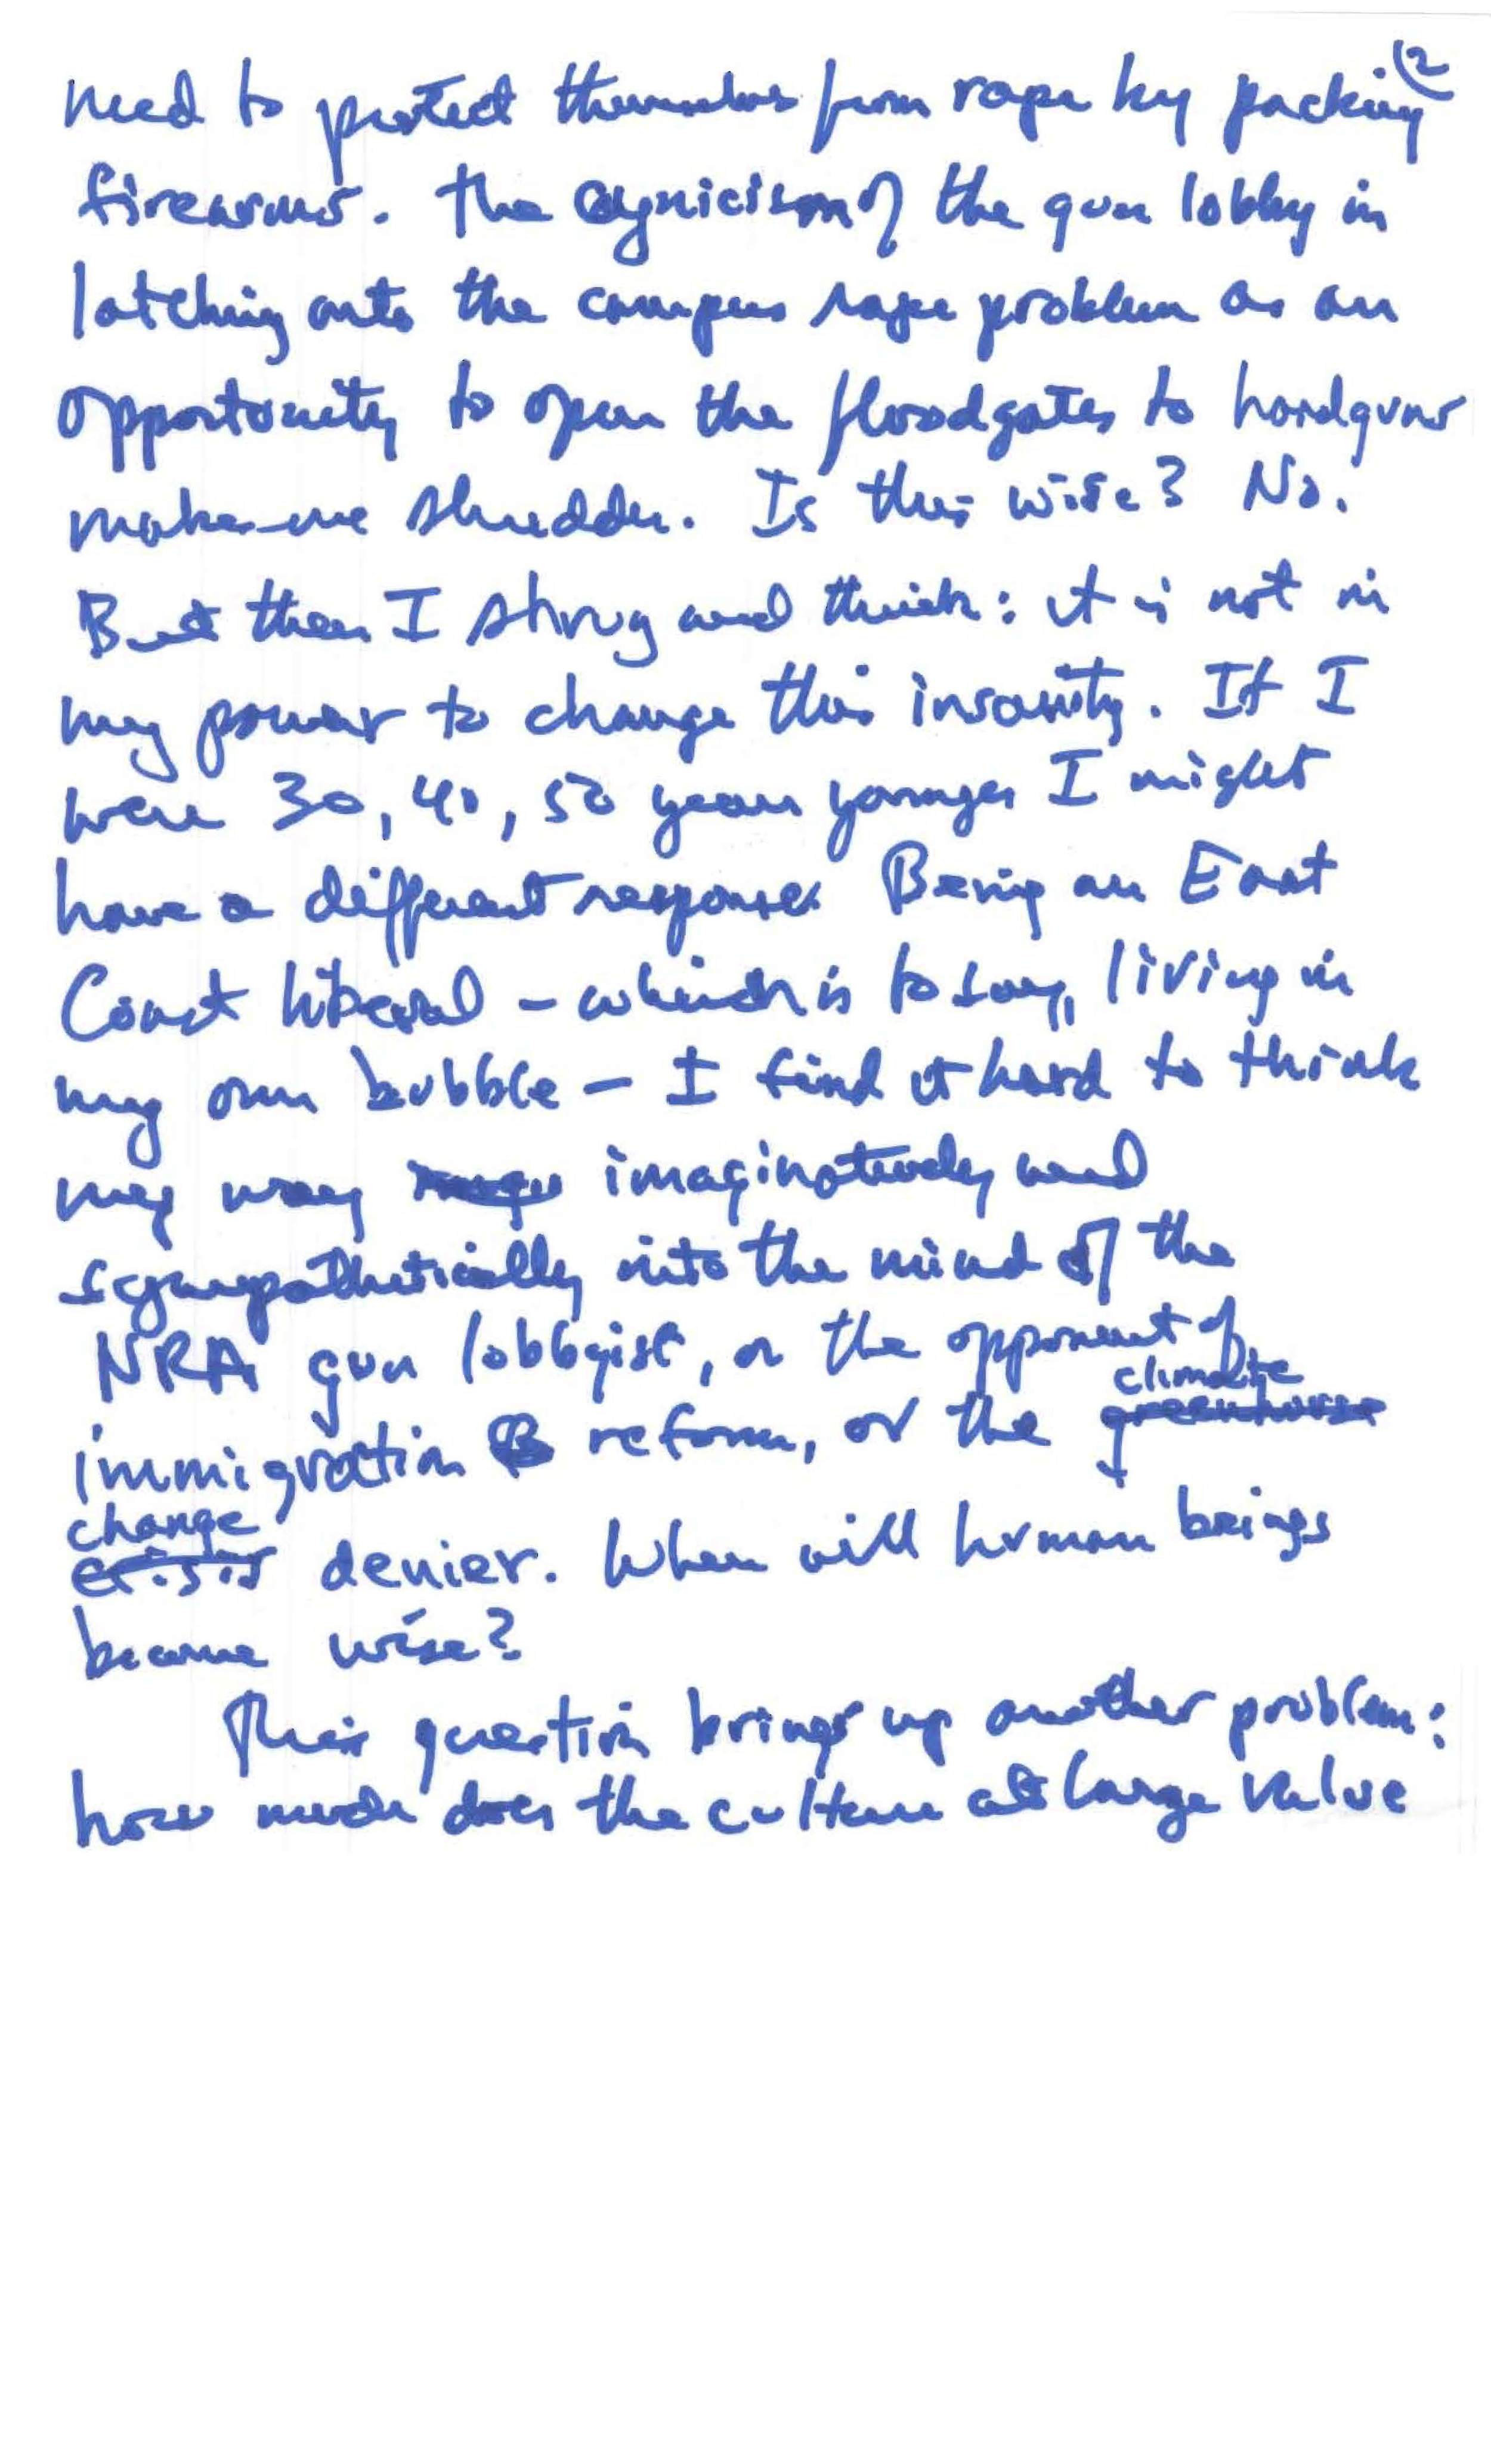 (2
need to protect themselves from rape by packing
firearms. The cynicism of the gun lobby in
latching onto the campus rape problem as an
opportunity to open the floodgates to handguns
makes me shudder. Is this wise? No.
But then I shrug and think: it is not in
my power to change this insanity. If I
were 30, 40, 50 years younger I might
have a different response. Being an East
Coast liberal – which is to say, living in
my own bubble – I find it hard to think
my way imaginatively and
sympathetically into the mind of the
NRA gun lobbyist, or the opponent of
immigration reform, or the greenhouse climate
crisis change denier. When will human beings
become wise?
This question brings up another problem:
how much does the culture at large value